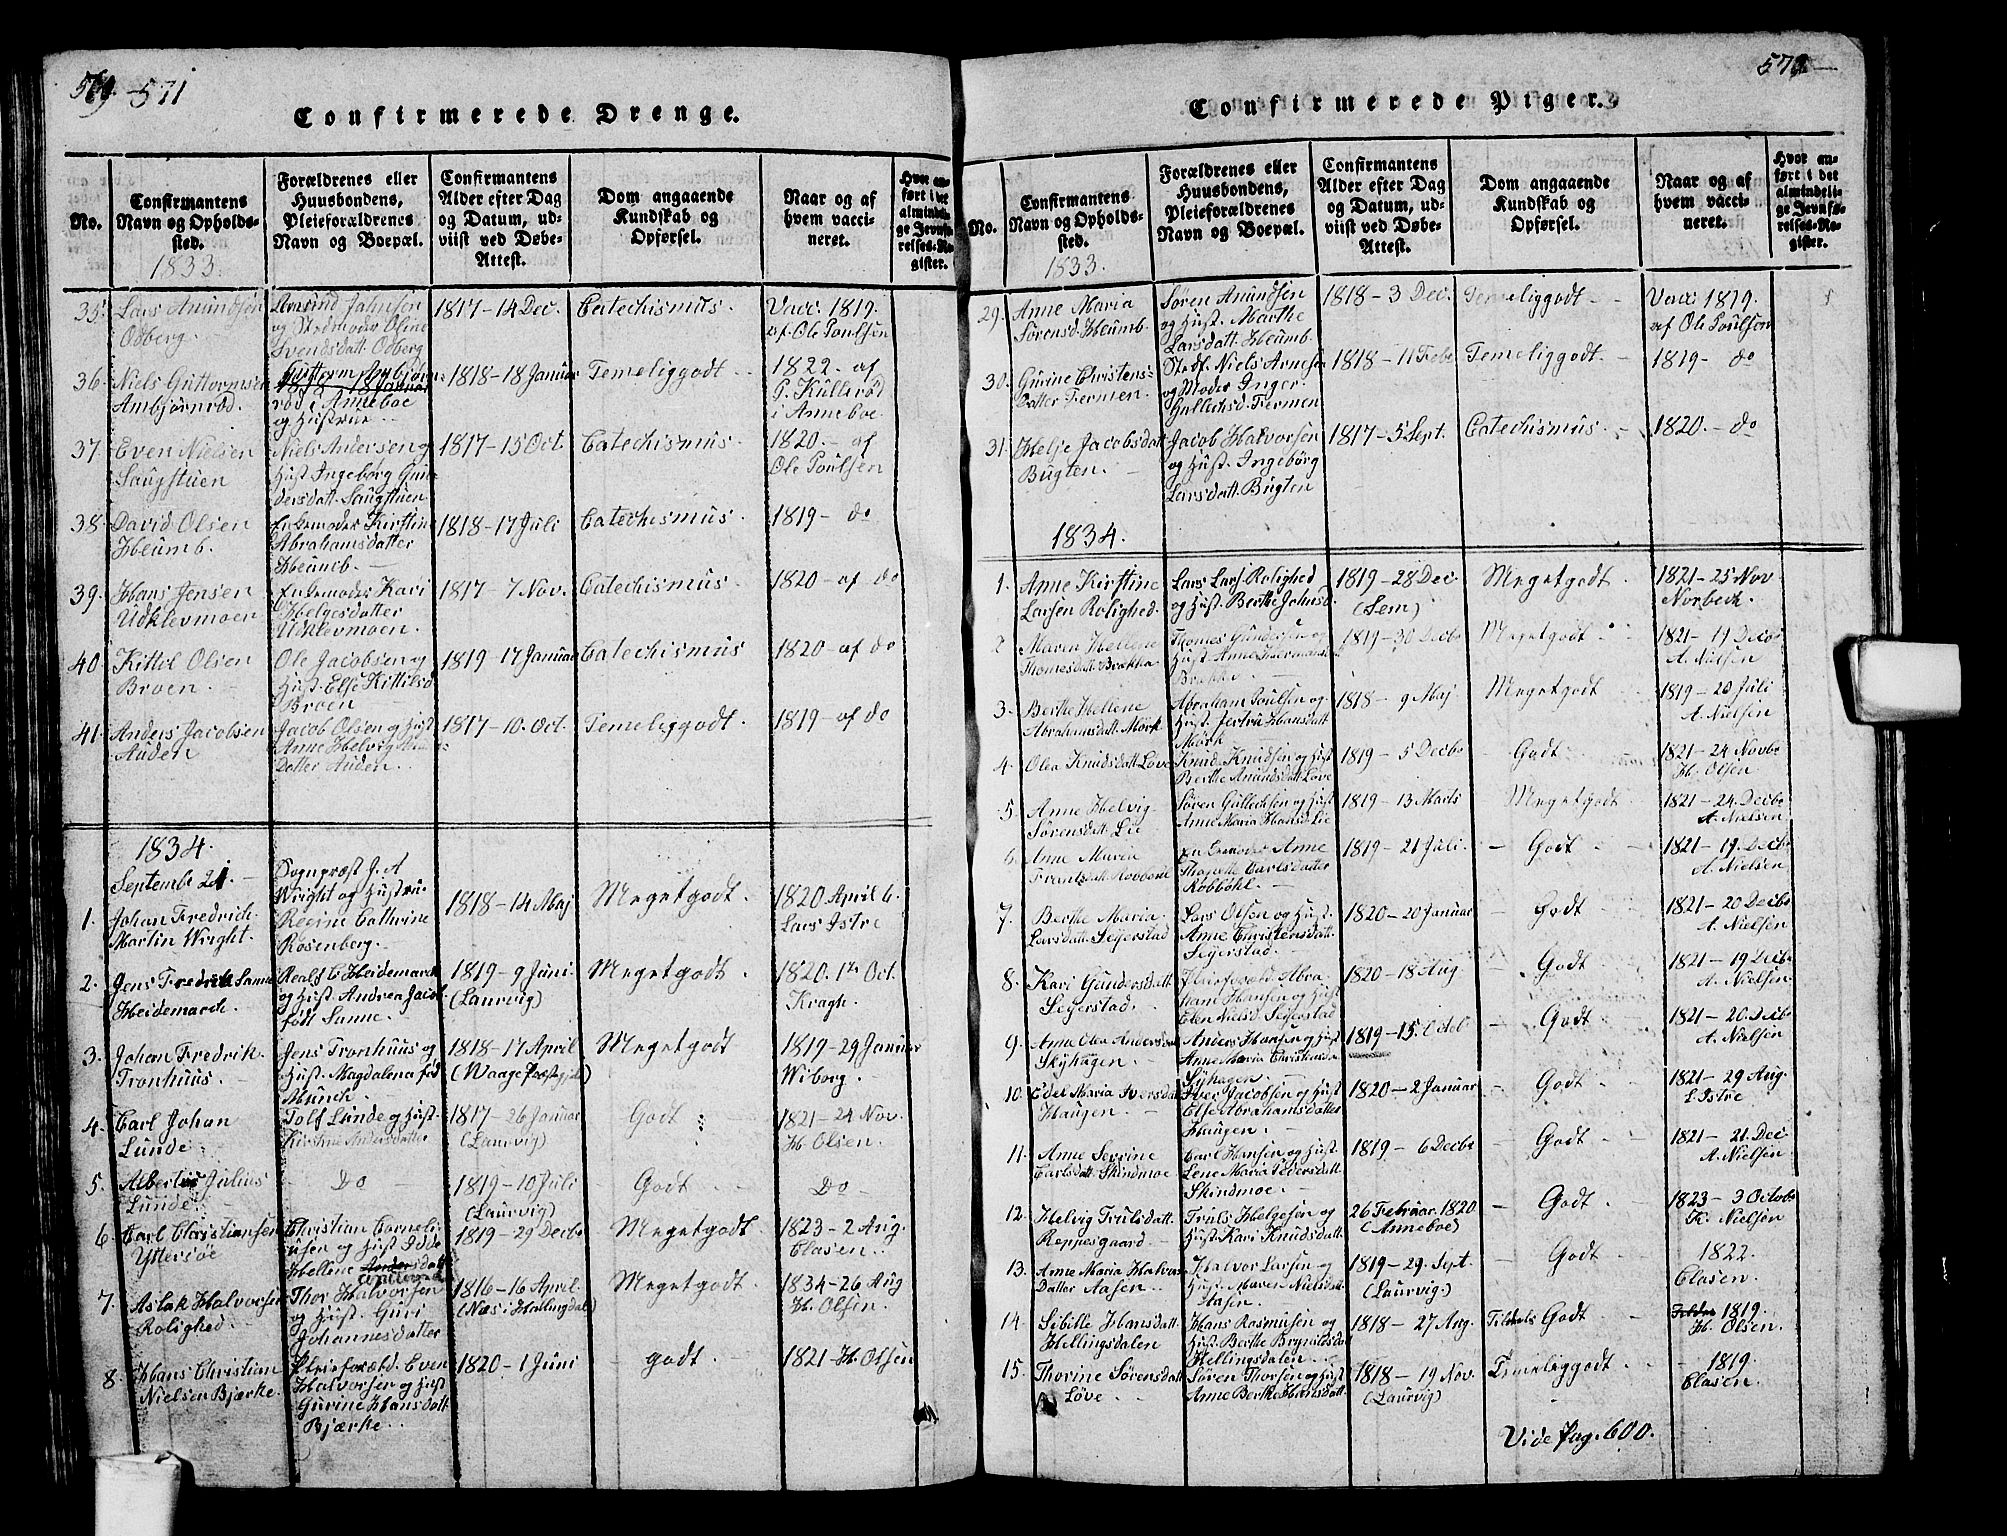 571
Confirmerede Drenge.
No.
Confirmantens
Navn og Opholds-
sted.
1833.
Forældrenes eller
Huusbondens,
Pleieforældrenes
Navn og Boepæl.
Confirmantens
Alder efter Dag
og Datum, ud-
viist ved Døbe-
Attest.
Dom angaaende
Kundskab og
Opførsel.
Naar og af
hvem vacci-
neret.
Hvor an-
ført i det
almindeli-
ge Jevnfø-
relses-Re-
gister.
35. Lars Amundsen
Odberg.
og Stedmoder Oline
Svendsdatt. Odberg
1817 - 14 Dec.
Catechismus.
Vacc. 1819.
af Ole Poulsen
36. Niels Guttormsen
Ambjørnrød.
rød i Anneboe
og Hustrue
1818 - 18 Januar
Temeliggodt.
1822. af
P. Kullerød
i Anneboe.
37. Even Nielsen
Saugstuen
Niels Andersen og
Hust. Ingeborg Gun-
dersdatt. Saugstuen
1817 - 15 Oct.
Catechismus
1820. - af
Ole Poulsen
38. David Olsen
Heumb.
Enkemoder Kirstine
Abrahamsdatter
Heumb.
1818 - 17 Juli
Catechismus.
1819 - do
39. Hans Jensen
Udklevmoen
Enkemoder Kari
Helgesdatter
Udklevmoen.
1817 - 7 Nov.
Catechismus.
1820 - af do
40. Kittil Olsen
Broen.
Ole Jacobsen og
Hust. Else Kittilsd
Broen
1819 - 17 Januar
Catechismus
1820 - af do
41. Anders Jacobsen
Auden
Jacob Olsen og Hust
Anne Helvig
Datter Auden.
1817 - 10. Oct.
Temeliggodt.
1819 - af do
1834.
Septemb. 21.
1. Johan Fredrich
Martin Wright.
Sognepræst J. A
Wright og Hustrue
Regine Cathrine
Rosenberg.
1818 - 14 Maj
Megetgodt.
1820 April 6.
Lars Istre
2. Jens Fredrik Sanne
Heidemarck.
Realf C Heidemarck
og Hust. Andrea Jacob.
født Sanne.
1819 - 9 Juni
(Laurvig)
Megetgodt
1820. 1te Oct.
Kragh.
3. Johan Fredrik
Tronhuus.
Jens Tronhuus og
Hust. Magdalena fød
Munch.
1818 - 17 April
(Waage Præstgjeld)
Megetgodt
1819 - 29 Januar
Wiborg.
4. Carl Johan
Lunde.
Tolf Lunde og Hust.
Kirstine Andersdatter
1817 - 26 Januar
(Laurvig)
Godt
1821 - 24 Nov.
H. Olsen.
5. Albertus Julius
Lunde.
Do
1819 - 10 Juli
(Laurvig)
Godt
Do
6. Carl Christiansen
Yttersøe
Christian Corneli-
usen og Hust. Idde
Hellene
1819 - 29 Decbr
Megetgodt.
1823 - 2 Aug.
Clasen.
7. Aslak Halvorsen
Rolighed
Thor Halvorsen
og Hust. Guri
Johannesdatter
1816 - 16 April.
(Næs i Hallingdal)
Megetgodt
1834 - 26 Aug
H. Olsen.
8. Hans Christian
Nielsen Bjærke.
Pleieforæld. Even
Halvorsen og Hust
Gurine Hansdatt.
Bjærke.
1820 - 1 Juni
godt.
1821 - H. Olsen
Confirmerede Piger.
No.
Confirmantens
Navn og Opholds-
sted.
1833.
Forældrenes eller
Huusbondens,
Pleieforældrenes
Navn og Boepæl.
Confirmantens
Alder efter Dag
og Datum, ud-
viist ved Døbe-
Attest.
Dom angaaende
Kundskab og
Opførsel.
Naar og af
hvem vacci-
neret.
Hvor an-
ført i det
almindeli-
ge Jevnfø-
relses-Re-
gister.
29. Anne Maria
Sørensd. Heumb.
Søren Amundsen
og Hust. Marthe
Larsdatt. Heumb.
1818 - 3 Dec.
Temeliggodt
Vacc. 1819.
af Ole Poulsen
30. Gurine Christens-
Datter Fermen.
Stedf. Niels Arnesen
og Moder Inger
Gullichsd. Fermen
1818 - 11 Febr
Temeliggodt.
1819 - do
31. Helje Jacobsdatt
Bugten.
Jacob Halvorsen
og Hust. Ingeborg
Larsdatt. Bugten
1817 - 5 Sept.
Catechismus.
1820. - do
1834.
1. Anne Kirstine
Larsen Rolighed.
Lars Lars. Rolighed
og Hust. Berthe Johnsd.
1819 - 28 Dec.
(Sem)
Megetgodt.
1821 - 25 Nov
Norbeck.
2 Maren Hellene
Thomesdatt. Brække
Thomes Gundersen og
Hust. Anne Hermands
Brække.
1819 - 30 Decbr
Megetgodt
1821 - 19 Decbr
A. Nielsen
3. Berthe Hellene
Abrahamsdatt. Mørk
Abraham Poulsen og
Hansdatt
Mørk
1818 - 9 Maj
Megetgodt
1819 - 20 Juli
A. Nielsen
4. Olea Knudsdatt. Løve
Knud Knudsen og Hust
Berthe Amundsdatt. Løve
1819 - 5 Decbr
Godt
1821 - 24 Novbr
H. Olsen
5 Anne Helvig
Sørensdatt. Lie
Søren Gullichsen og Hust
Anne Maria Hansd. Lie
1819 - 13 Marts
Megetgodt
1821 - 24. Decbr
A. Nielsen
6. Anne Maria
Frantsdatt. Robbøhl
Enkemoder Anne
Carlsdatter
Robbøhl.
1819 - 21 Juli.
Godt
1821 - 19. Decbr
A. Nielsen
7. Berthe Maria
Larsdatt. Seyerstad
Lars Olsen og Hust.
Anne Christensdatt.
Seyerstad.
1820 - 20 Januar
Godt
1821 - 20 Decbr
A. Nielsen
8. Kari Gundersdatt.
Seyerstad.
Pleieforæld. Abra-
ham Hansen og Hust
Elen Nielsd Seyerstad
1820 - 18 Aug
Godt
1821 - 19 Decbr
A. Nielsen
9. Anna Olea Andersdatt
Skyhagen.
Anders Hansen og Hust
Anne Maria
Syhagen.
1819 - 15. Octob
Godt
1821 - 20. Decbr
A. Nielsen
10. Edel Maria Iversdatt
Haugen.
Iver Jacobsen og Hust
Else Abrahamsdatter
Haugen.
1820 - 2 Januar
Godt
1821 - 29 Aug.
L Istre
11. Anne Sevrine
Carlsdatt. Skindmoe
Carl Hansen og Hust
Lene Maria Pedersdatt.
Skindmoe.
1819 - 6 Decbr
Godt
1821 - 21. Dec
A. Nielsen
12. Helvig Trulsdatt.
Reppesgaard.
Truls Helgesen og
Hust. Kari Knudsdatt.
26 Februar. 1820
(Anneboe)
Godt
1823 - 3 Octobr
K. Nielsen
13. Anne Maria Halvors
Datter Aasen.
Halvor Larsen og
Hust. Maren Nielsdatt
Aasen.
1819 - 29. Sept.
(Laurvig)
Godt
1822.
Clasen.
14. Sibille Hansdatt.
Hellingsdalen
Hans Rasmusen og
Hust. Berthe Brynildsdatt
Hellingsdalen
1818 - 27 Aug.
Tildeels Godt
1819.
H. Olsen.
15. Thorine Sørensdatt.
Løve
Søren Thorsen og Hust
Anne Berthe Hansdatt.
1818 - 19 Nov.
(Laurvig)
Temeliggodt
1819.
Clasen.
Vide Pag. 600.